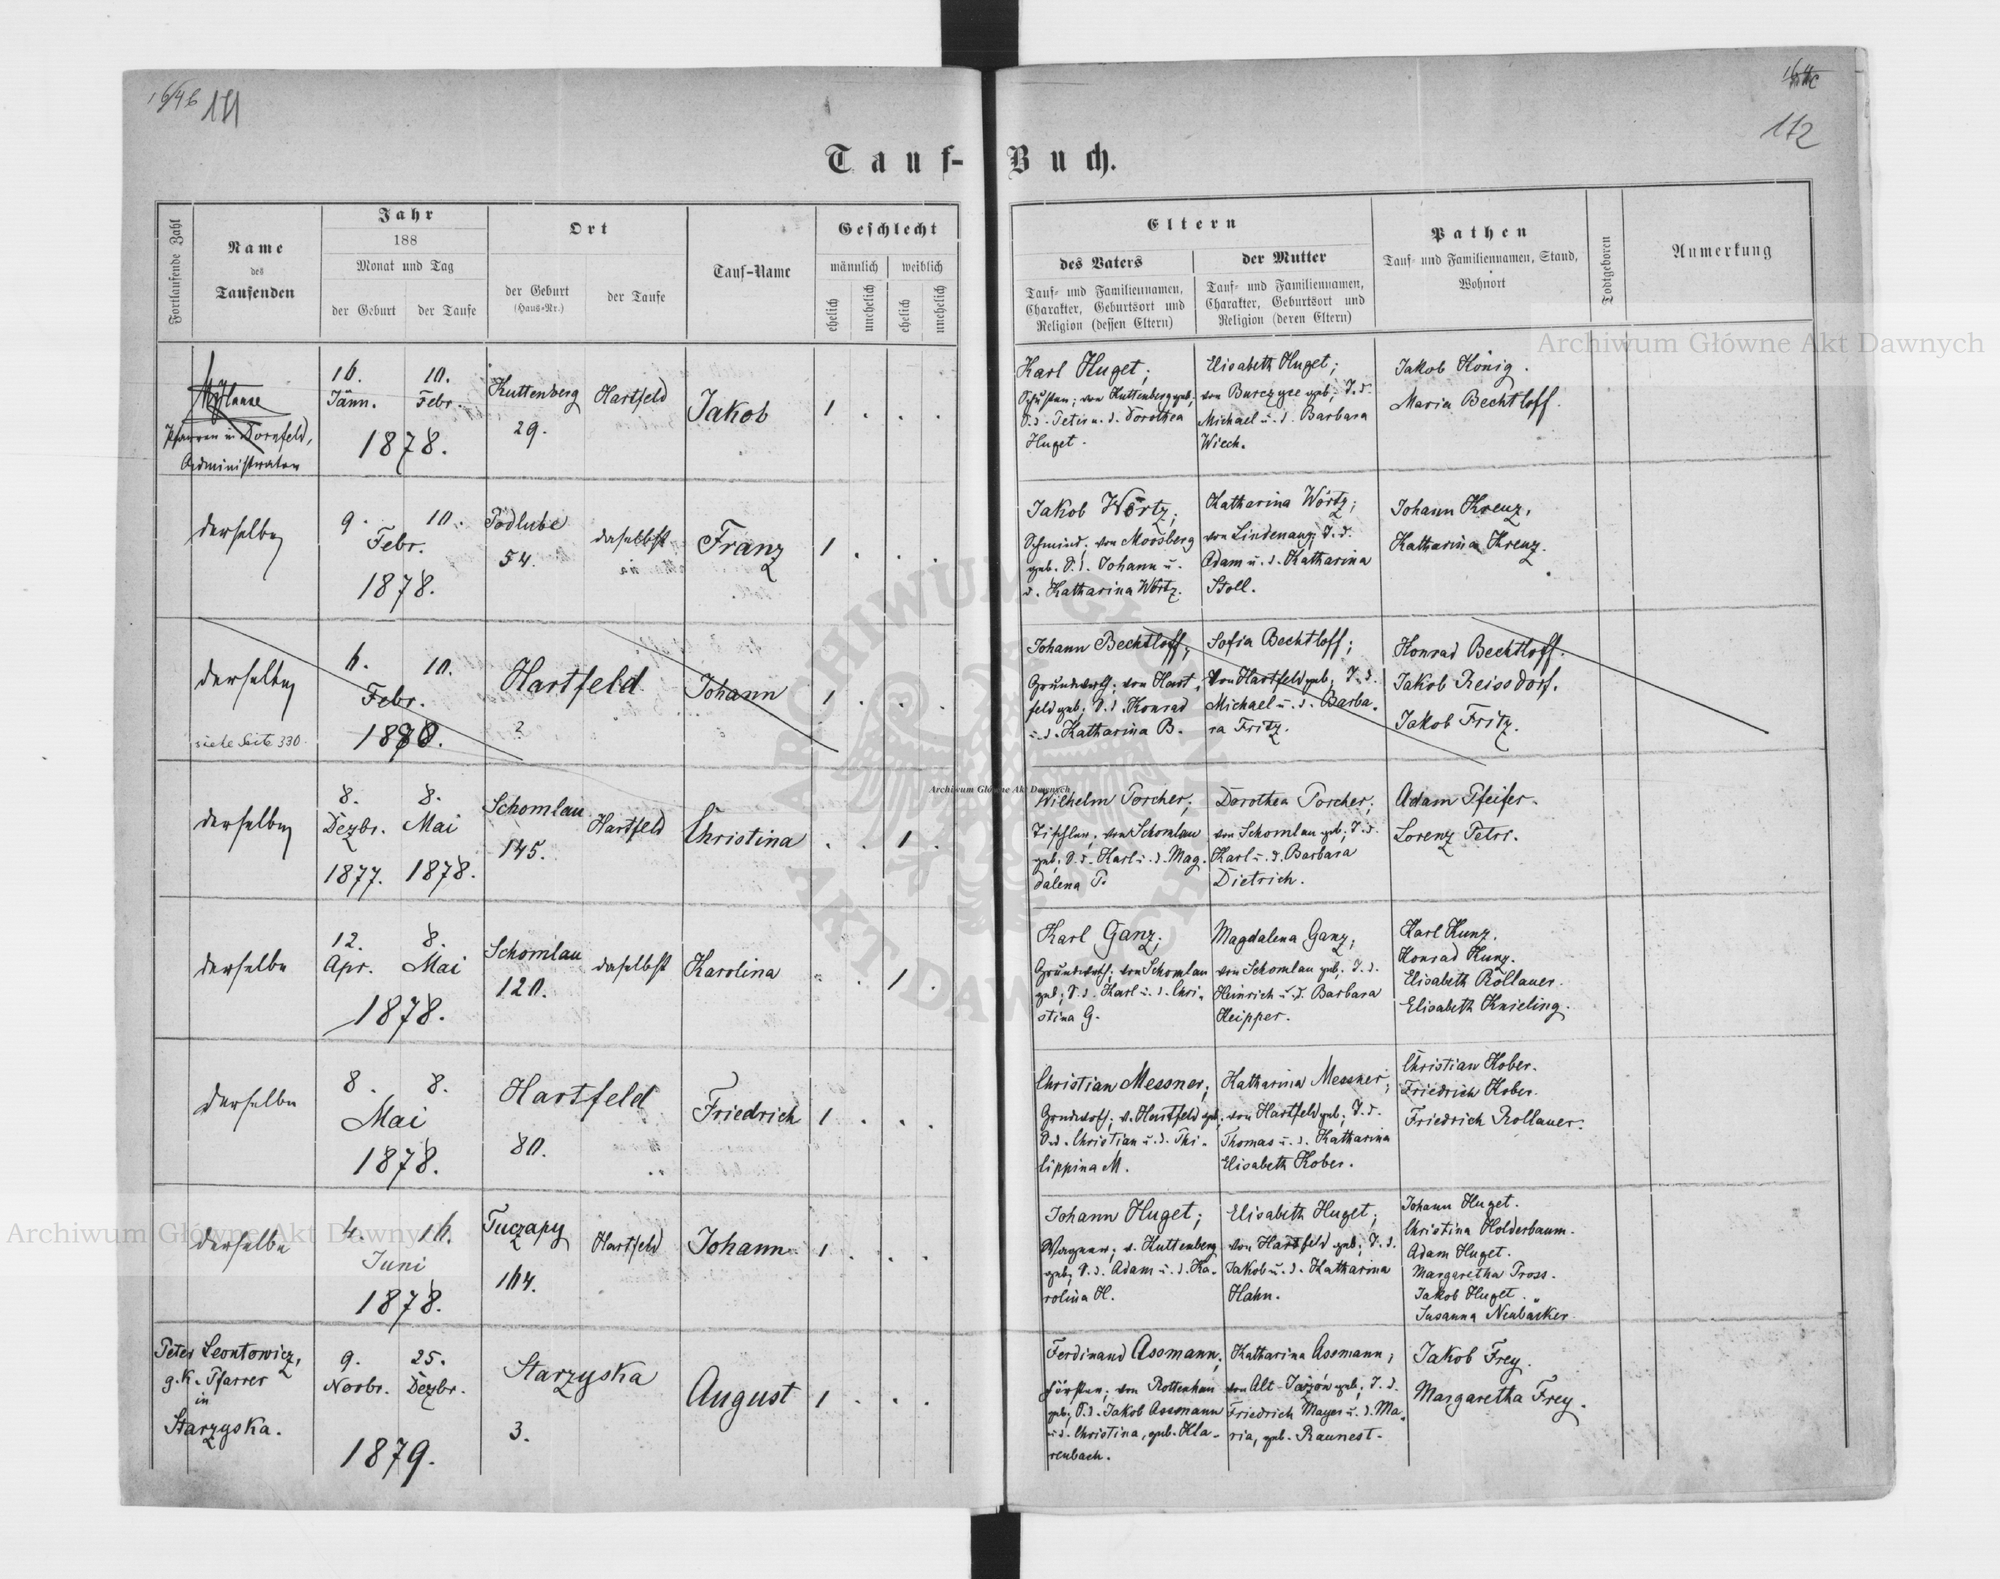 1646 171
164c
172
Tauf-Buch.
Fortlaufende Zahl
Name
des
Taufenden
Jahr
188
Monat und Tag
der Geburt
der Taufe
Ort
der Geburt
(Haus-Nr.)
der Taufe
Tauf-Name
Geschlecht
männlich
weiblich
ehelich
unehelich
ehelich
unehelich
Eltern
des Vaters
Tauf- und Familiennamen,
Charakter, Geburtsort und
Religion (dessen Eltern)
der Mutter
Tauf- und Familiennamen,
Charakter, Geburtsort und
Religion (deren Eltern)
Pathen
Tauf- und Familiennamen, Stand,
Wohnort
Todtgeboren
Anmerkung
Pfarrer in Dornfeld,
Administrator
16.
Jänn.
10.
Febr.
1878.
Kuttenberg
29.
Hartfeld
Jakob
1 . . .
Karl Huget;
Schuster; von Kuttenberg geb;
S. d. Peter u. d. Dorothea
Huget.
Elisabeth Huget;
von Burczyce geb; T. d.
Michael u. d. Barbara
Wiech.
Jakob König.
Maria Bechtloff.
derselbe
9. 10.
Febr.
1878.
Podlube
54.
daselbst
Franz
1 . . .
Jakob Wörtz;
Schmied; von Moosberg
geb. S. d. Johann u.
d. Katharina Wörtz.
Katharina Wörtz;
von Lindenau; T. d.
Adam u. d. Katharina
Stoll.
Johann Kreuz.
Katharina Kreuz.
derselbe
siehe Seite 330.
6. 10.
Febr.
1878.
Hartfeld
?
Johann
1 . . .
Johann Bechtloff;
Grundwirth; von Hart-
feld geb; S. d. Konrad
u. d. Katharina B.
Sofia Bechtloff;
von Hartfeld geb; T. d.
Michael u. d. Barba-
ra Fritz.
Konrad Bechtloff.
Jakob Reissdorf.
Jakob Fritz.
derselbe
8.
Dezbr.
1877.
8.
Mai
1878.
Schomlau
145.
Hartfeld
Christina
. . 1 .
Wilhelm Porcher;
Tischler; von Schomlau
geb; S. d. Karl u. d. Mag-
dalena P.
Dorothea Porcher;
von Schomlau geb; T. d.
Karl u. d. Barbara
Dietrich.
Adam Pfeifer.
Lorenz Petri.
derselbe
12.
Apr.
8.
Mai
1878.
Schomlau
120.
daselbst
Karolina
. . 1 .
Karl Ganz;
Grundwirth; von Schomlau
geb; S. d. Karl u. d. Chri-
stina G.
Magdalena Ganz;
von Schomlau geb; T. d.
Heinrich u. d. Barbara
Keipper.
Karl Kunz.
Konrad Kunz.
Elisabeth Rollauer.
Elisabeth Knieling.
derselbe
8. 8.
Mai
1878.
Hartfeld
80.
Friedrich
1 . . .
Christian Messner;
Grundwirth; v. Hartfeld geb;
S. d. Christian u. d. Phi-
lippina M.
Katharina Messner;
von Hartfeld geb; T. d.
Thomas u. d. Katharina
Elisabeth Kober.
Christian Kober.
Friedrich Kober.
Friedrich Rollauer.
derselbe
4. 16.
Juni
1878.
Tuczapy
164.
Hartfeld
Johann
1 . . .
Johann Huget;
Wagner; v. Kuttenberg
geb; S. d. Adam u. d. Ka-
rolina H.
Elisabeth Huget;
von Hartfeld geb; T. d.
Jakob u. d. Katharina
Hahn.
Johann Huget.
Christina Holderbaum.
Adam Huget.
Margaretha Pross.
Jakob Huget.
Susanna Neubäcker.
Peter Leontowicz,
g. k. Pfarrer
in
Starzyska.
9.
Novbr.
25.
Dezbr.
1879.
Starzyska
3.
August
1 . . .
Ferdinand Assmann;
Förster; von Rottenhan
geb; S. d. Jakob Assmann
u. d. Christina, geb. Kla-
renbach.
Katharina Assmann;
von Alt-Jazów geb; T. d.
Friedrich Mayer u. d. Ma-
ria, geb. Raunest.
Jakob Frey.
Margaretha Frey.
Archiwum Główne Akt Dawnych
Archiwum Główne Akt Dawnych
Archiwum Główne Akt Dawnych